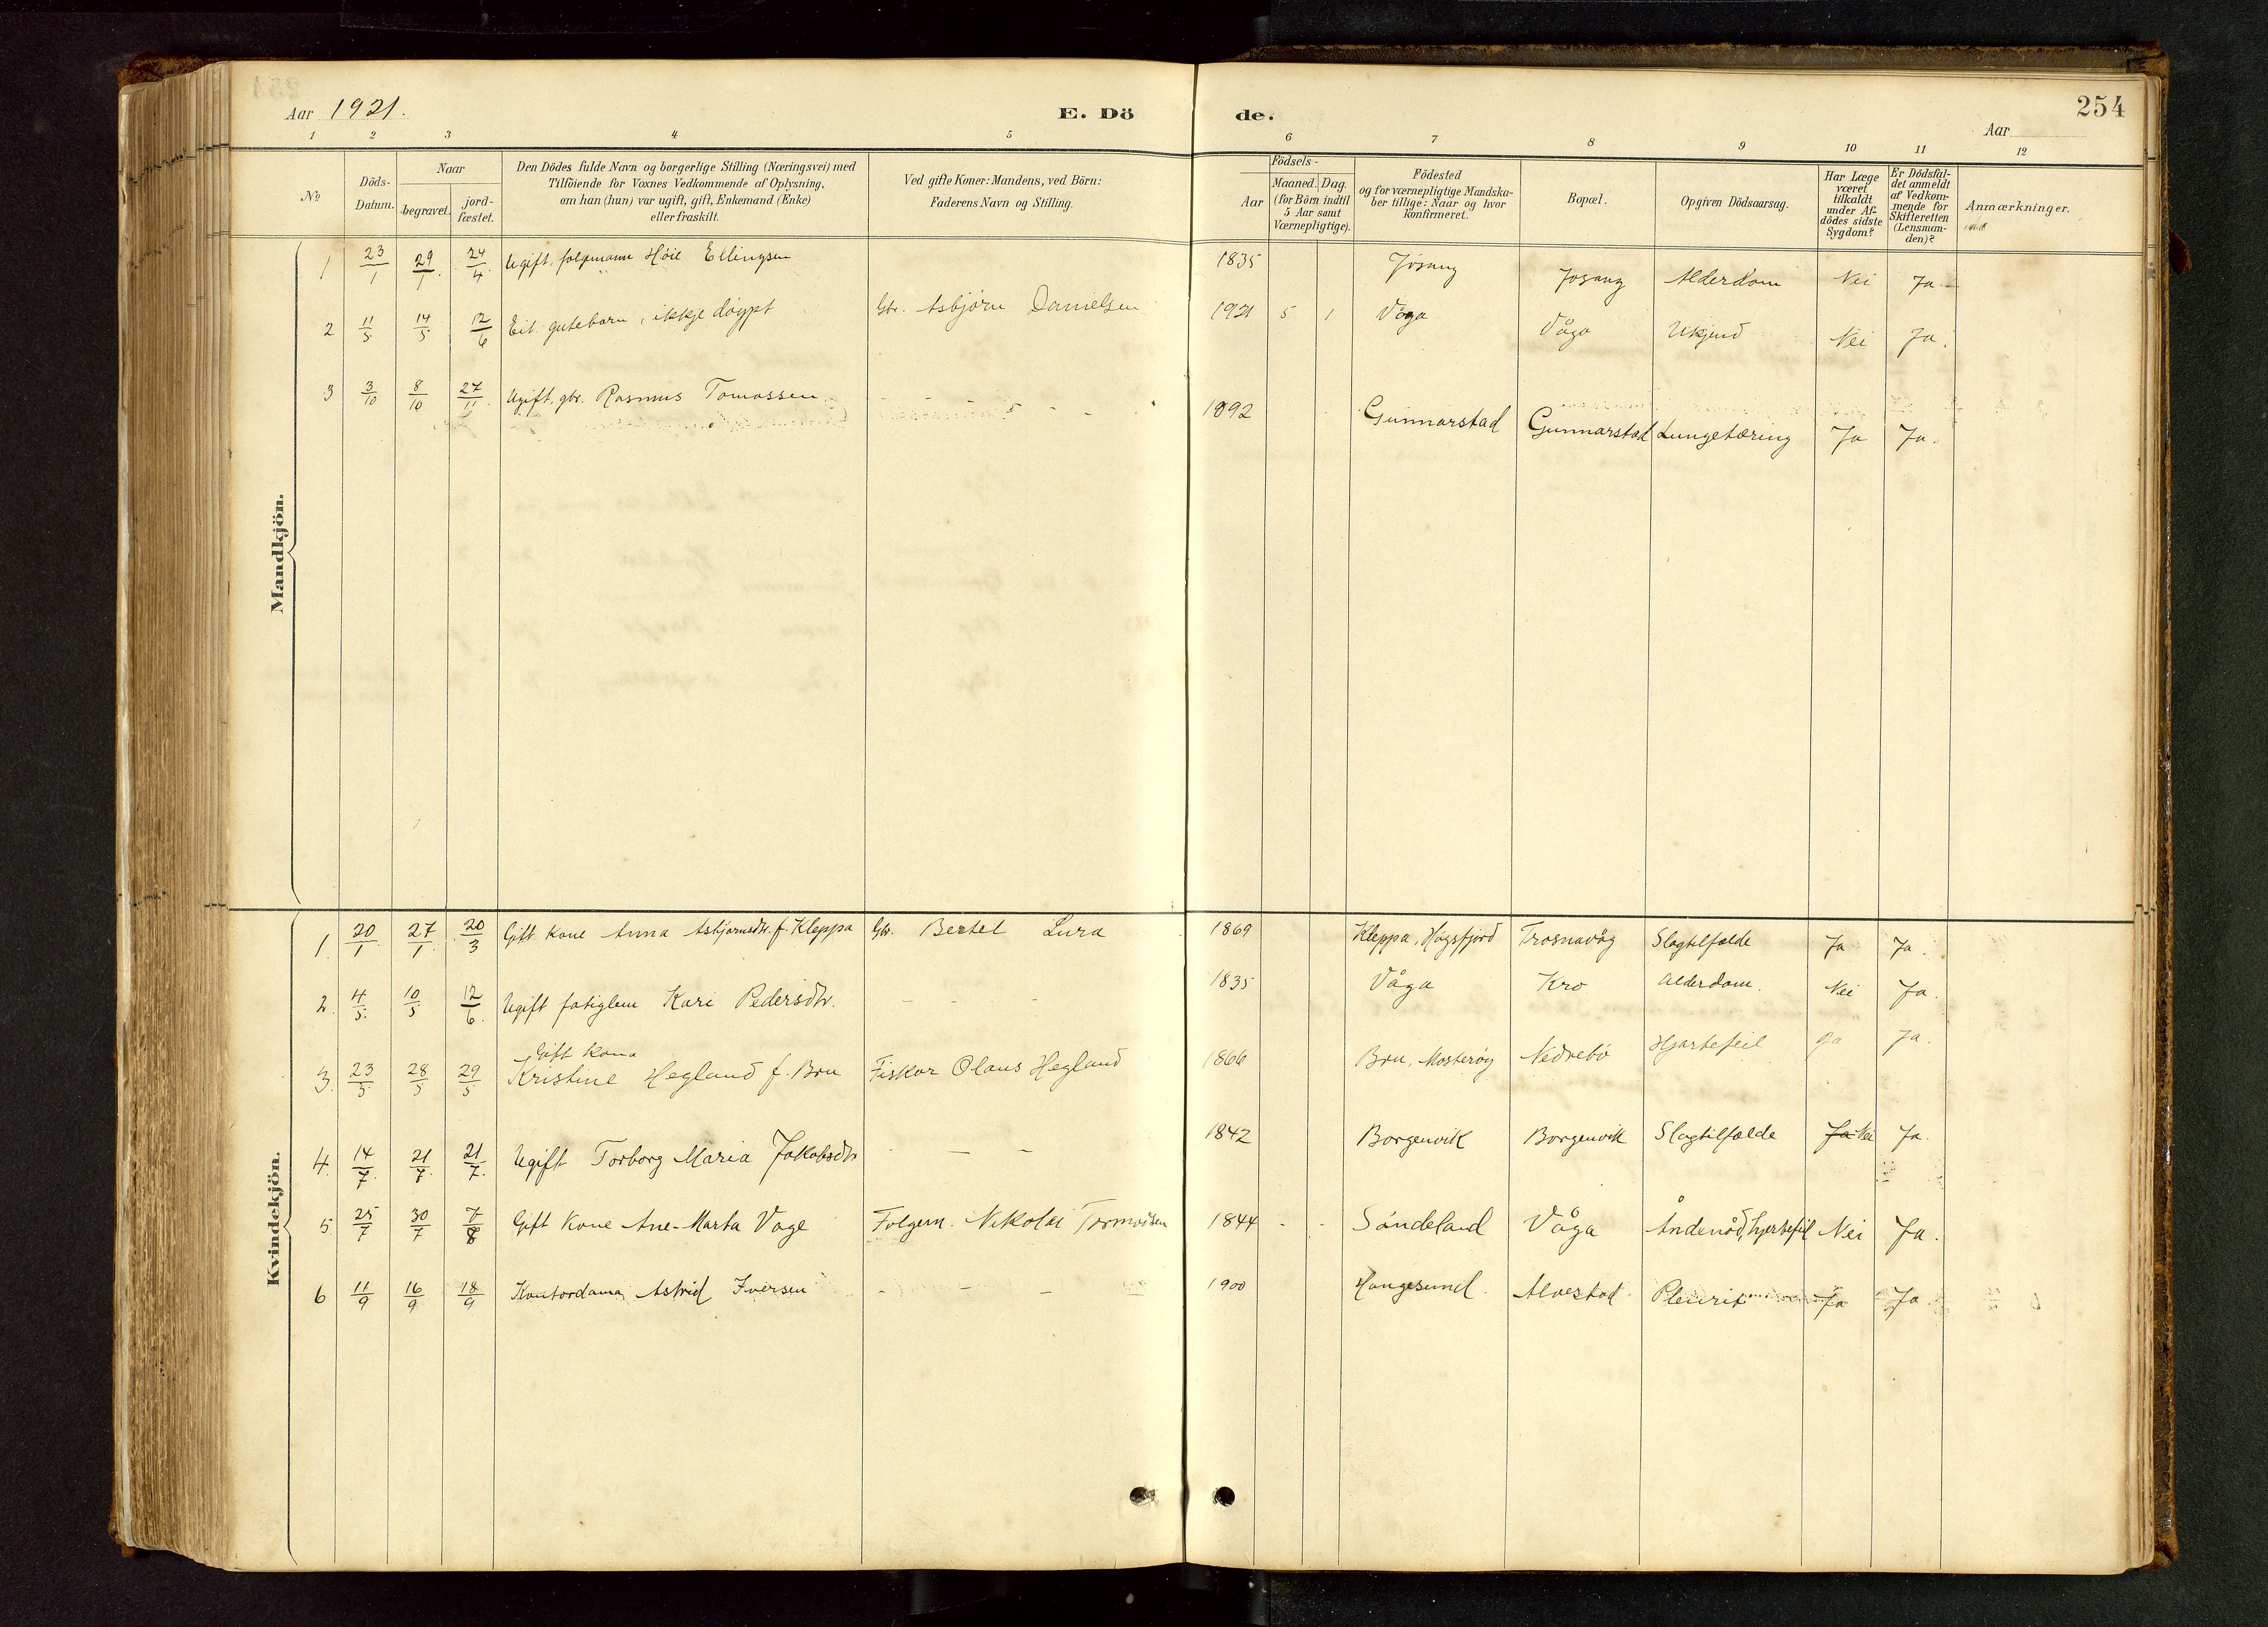 254
Aar 1921. E. Dö de. Aar
1 2 3 4 5 6 7 8 9 10 11 12
No
Döds-Datum.
Naar
begravet.
jord-fæstet.
Den Dödes fulde Navn og borgerlige Stilling (Næringsvei) med
Tilföiende for Voxnes Vedkommende af Oplysning,
om han (hun) var ugift, gift, Enkemand (Enke)
eller fraskilt.
Ved gifte Koner: Mandens, ved Börn:
Faderens Navn og Stilling.
Födsels-
Aar
Maaned. Dag.
(for Börn indtil
5 Aar samt
Værnepligtige).
Födested
og for værnepligtige Mandska-
ber tillige: Naar og hvor
konfirmeret.
Bopæl.
Opgiven Dödsaarsag.
Har Læge
været
tilkaldt
under Af-
dödes sidste
Sygdom?
Er Dödsfal-
det anmeldt
af Vedkom-
mende for
Skifteretten
(Lensman-
den)?
Anmærkninger.
Mandkjön.
1 23/1 29/1. 24/4. Ugift, folgmann Höie Ellingsen 1835 Jösang Josang Alderdom Nei Ja.
2 11/5 14/5 12/6 Eit gutebarn, ikkje döypt Gbr. Asbjörn Danielsen 1921 5 1 Våga Våga Ukjend Nei Ja.
3 3/10 8/10 27/11. Ugift. gbr. Rasmus Tomassen - - - - - 1892 Gunnarstad Gunnarstad Lungetæring Ja Ja.
Kvindekjön.
1. 20/1 27/1 20/3 Gift Kone Anna Asbjörnsdtr. f. Kleppa Gbr. Bertel Lura 1869 Kleppa, Högsfjord Trosnavåg Slagtilfælde Ja Ja.
2. 4/5. 10/5 12/6. Ugift Kari Pedersdtr. - - - 1835 Våga Kro Alderdom. Nei Ja.
3. 23/5 28/5 29/5 Gift Kona
Kristine Hegland f. Bru Fiskar Olaus Hegland 1866 Bru, Mosteröy Nedrebö Hjartefeil Ja Ja.
4. 14/7. 21/7. 21/7. Ugift Torborg Maria Jakobsdtr - - 1842 Borgenvik Borgenvik Slagtilfælde Ja Nei Ja.
5 25/7 30/7 7/8 Gift Kone Ane-Marta Vage Folgem. Nikolai Tormodsen 1844 - - Söndeland Våga Åndenöd, hjertefeil Nei Ja.
6 11/9 16/9 18/9 Kontordama Astrid Iversen - - - - 1900 Haugesund. Alvestad. Pleurit Ja Ja.